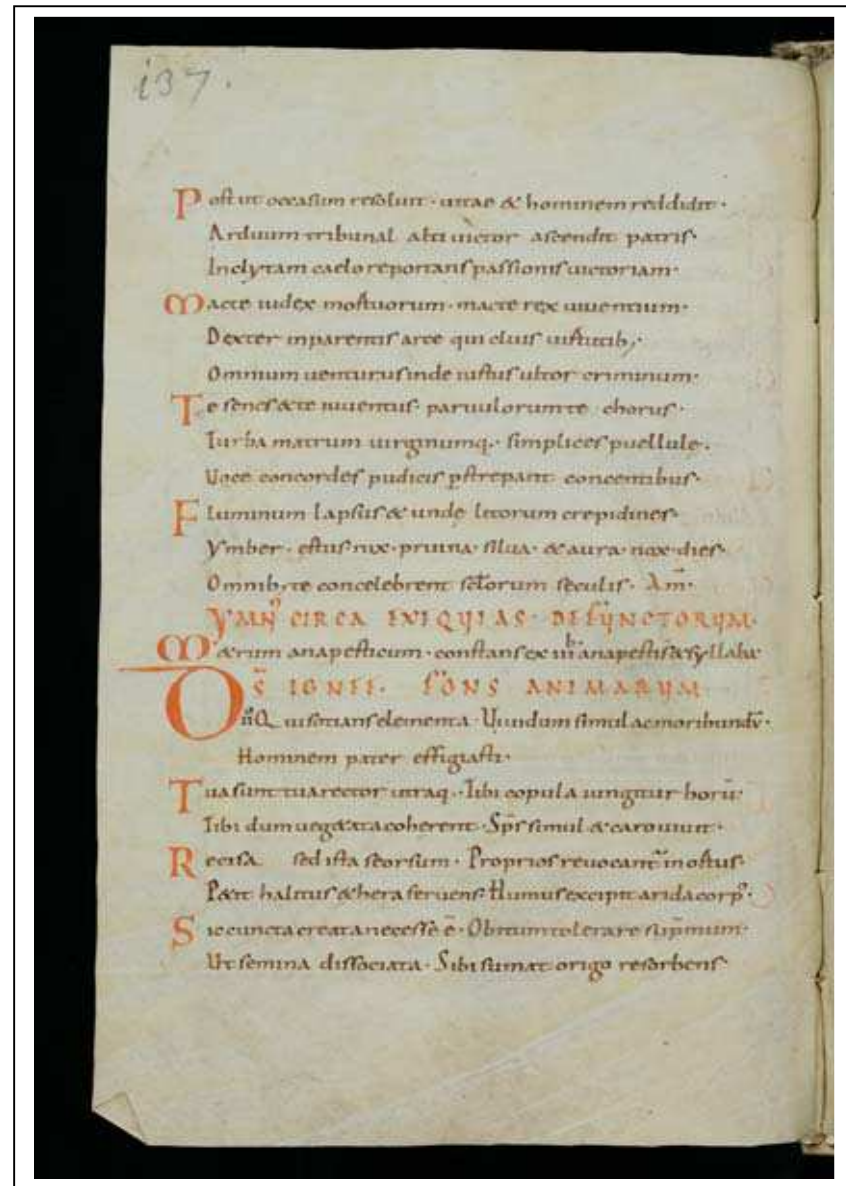 i37.
Post ut occasum resoluit · uitae & hominem reddidit ·
Arduum tribunal alti uictor ascendit patris ·
Inclytam caelo reportans passionis uictoriam ·
Macte iudex mortuorum · macte rex uiuentium ·
Dexter in parentis arce qui cluis uirtutib; ·
Omnium uenturus inde iustus ultor criminum ·
Te senes & te iuuentus · paruulorum te chorus ·
Turba matrum uirginumq· simplices puellule ·
Uoce concordes pudicis pstrepant concentibus ·
Fluminum lapsus & unde litorum crepidines ·
Ymber · estus nix · pruina · silua · & aura · nox · dies ·
Omnib; te concelebrent sctorum seculis · Am̄ ·
YMN CIRCA EXEQUIAS · DEFUNCTORUM ·
Metrum anapesticum · constans ex IIIb anapestis & syllaba
DS IGNEE · FONS ANIMARUM
Quisotians elementa · Uiuundum simul ac moribundū ·
Hominem pater effigiasti ·
Tua sunt tua rector utraq· · Tibi copula iungitur horū ·
Tibi dum uegetata coherent · Sp̄s simul & caro uiuit ·
Recisa sed ista seorsum · Proprios reuocant in ortus ·
Petit halitus ethera feruens · Humus excipit arida corp᾽ ·
Sic cuncta creata necesse ē · Obitum tolerare sup̄mum ·
Ut semina dissociata · Sibi sumat origo resorbens ·